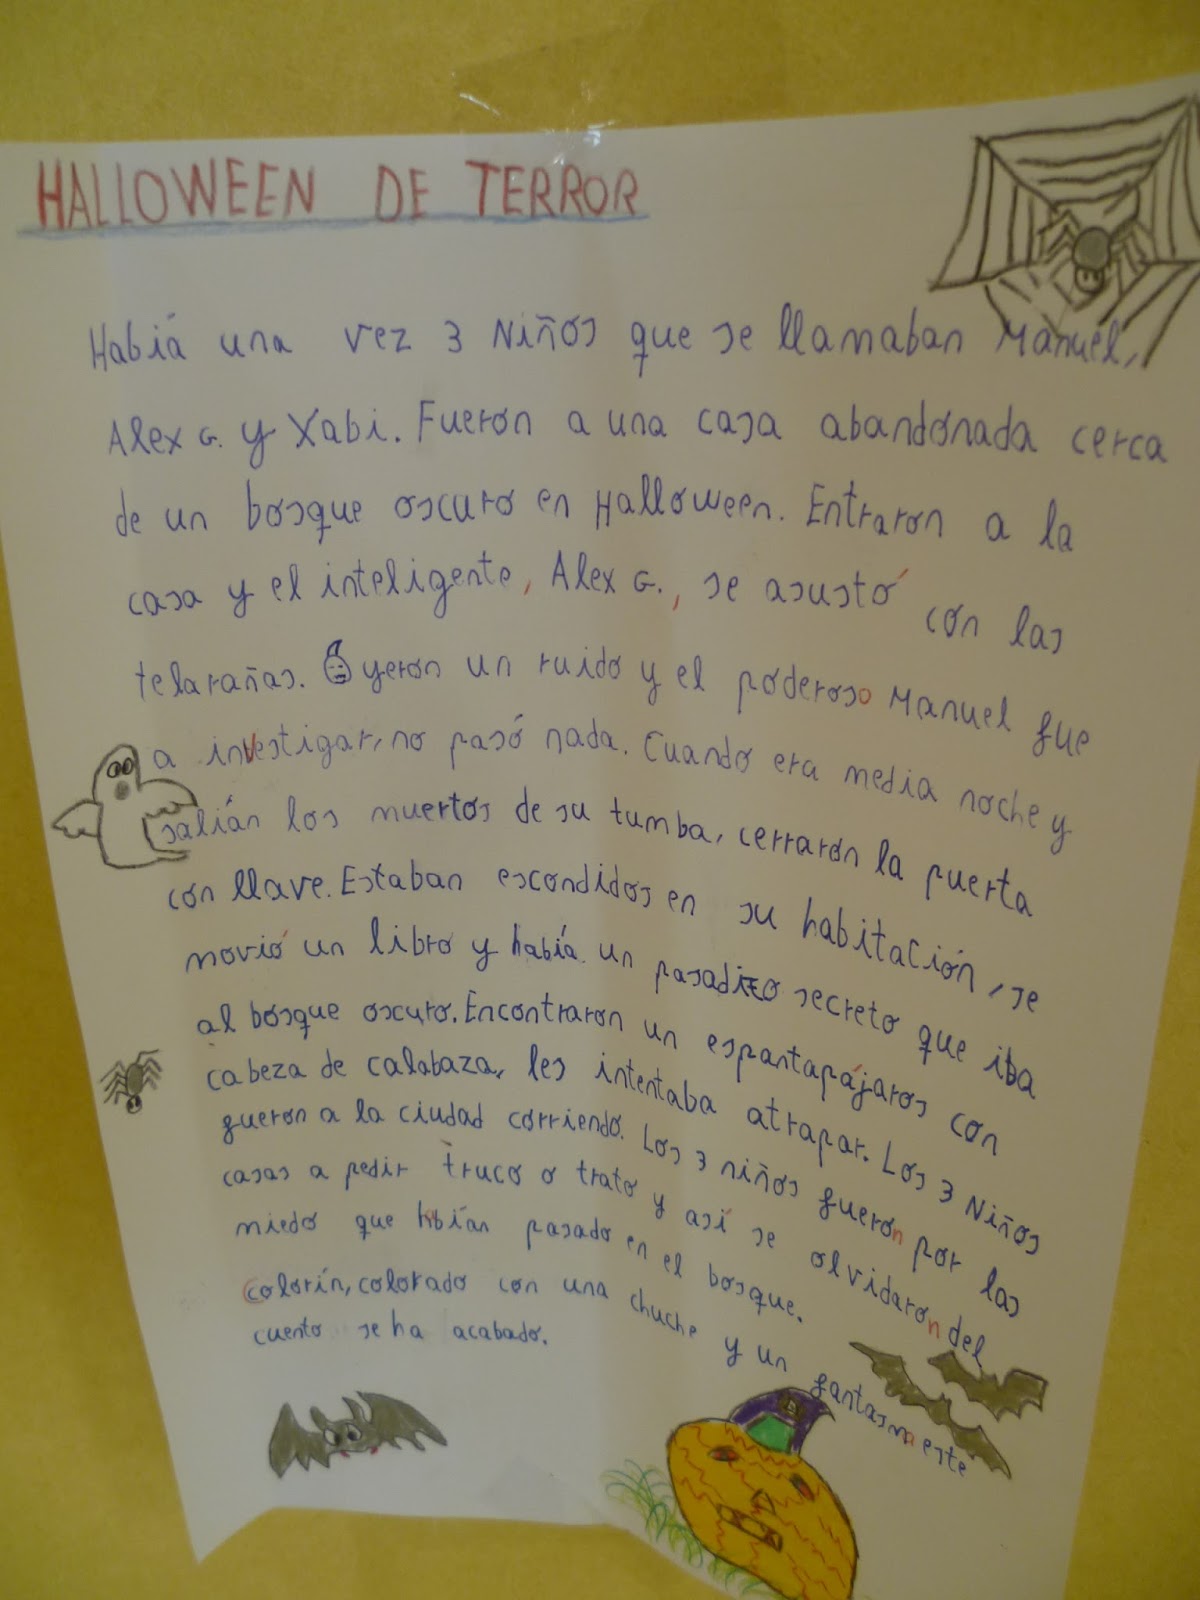 HALLOWEEN DE TERROR
Habiá una vez 3 Niños que se llamaban Manuel,
Alex G. y Xabi. Fueron a una casa abandonada cerca
de un bosque oscuro en Halloween. Entraron a la
casa y el inteligente, Alex G., se asustó con las
telarañas. Oyeron un ruido y el poderoso Manuel fue
a investigar, no pasó nada. Cuando era media noche y
salián los muertos de su tumba, cerraron la puerta
con llave. Estaban escondidos en su habitación, se
movió un libro y había un pasadizo secreto que iba
al bosque oscuro. Encontraron un espantapájaros con
cabeza de calabaza, les intentaba atrapar. Los 3 Niños
fueron a la ciudad corriendo. Los 3 niños fueron por las
casas a pedir truco o trato y así se olvidaron del
miedo que habían pasado en el bosque.
Colorín, colorado con una chuche y un fantasma este
cuento se ha acabado.